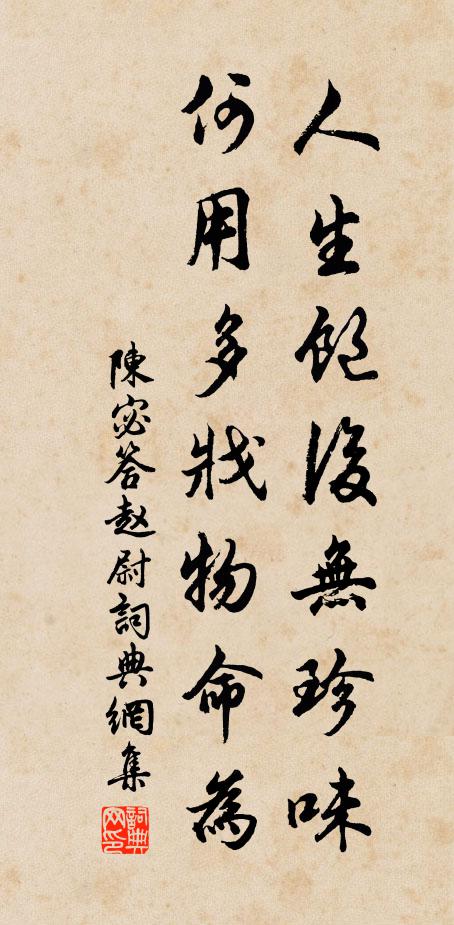 人生飽後無珍味
何用多戕物命為
陳宓答赵尉詞典網集
詞典網印